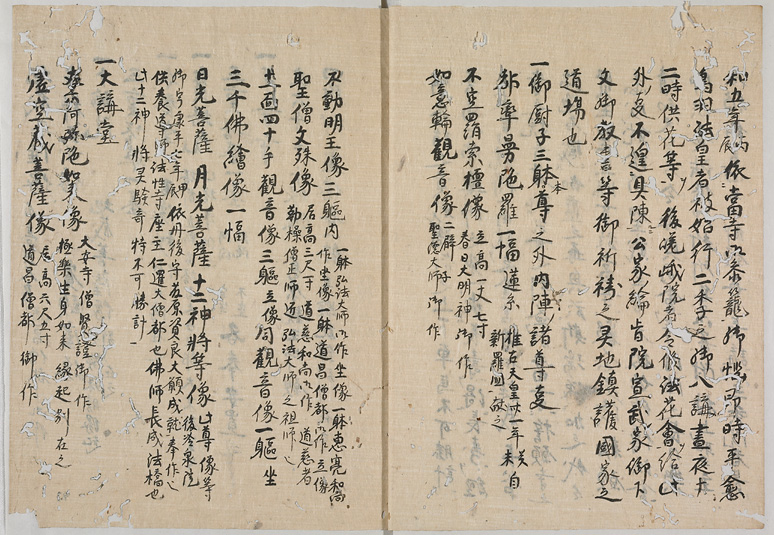 和五年丙辰依當寺御参籠御悩即時平愈
鳥羽法皇者被始行二季之御八講晝夜十
二時供花等後嵯峨院者令修法花會給此
外支不遑具陳公家綸旨院宣武家御下
文御教書等御祈祷之灵地鎮護國家之
道場也
一御厨子三躰本尊之外内陣諸尊支
弥率曼陀羅一幅蓮糸
推古天皇卅一年癸未自
新羅國献之
不空羂索檀像立高一丈七寸
春日大明神御作
如意輪觀音像二臂
聖德太師御作
不動明王像三軀内一躰弘法大師御作坐像一躰惠亮和尚
作坐像一躰道昌僧都御作立像
聖僧文殊像居高三尺二寸道慈和尚御作道慈者
勤操僧正師道弘法大師之祖師也
十一面四十手觀音像三軀立像同觀音像一軀坐
三千佛繪像一幅
日光菩薩月光菩薩十二神將等像此尊像等
後冷泉院
御宇康平七年甲辰依丹後守藤原資良大願成就奉作也
供養送導師法性寺座主仁暹大僧都也佛師長成法橋也
此十二神將灵驗奇特不可勝計
一大講堂
奉安阿弥陁如来像大安寺僧賢證御作
極樂生身如来縁起別在之
虚空蔵菩薩像居高六尺五寸
道昌僧都御作